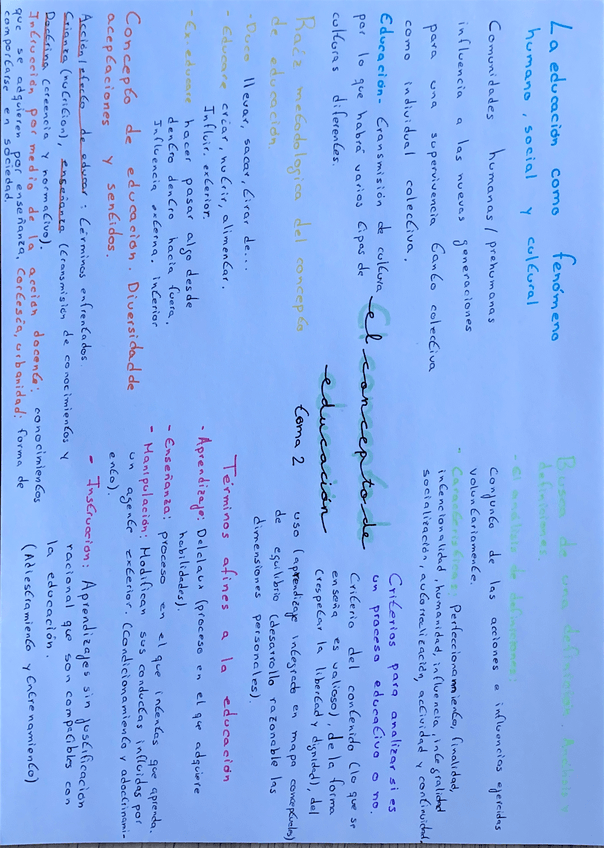 La educación como fenómeno
humano, social y cultural
Comunidades humanas / prehumanas
influencia a las nuevas generaciones
para una supervivencia tanto colectiva
como individual colectiva.
Educación- transmisión de cultura,
por lo que habrá varios tipos de
culturas diferentes.
Raíz metodologica del concepto
de educación
- Duco llevar, sacar, tirar de...
- Educare criar, nutrir, alimentar.
Influir, exterior.
- Ex-educare hacer pasar algo desde
dentro dentro hacia fuera.
Influencia externa, interior
Concepto de educación. Diversidad de
aceptaciones y sentidos.
Acción/efecto de educar: términos enfrentados
Crianza (nutrición), enseñanza (transmisión de conocimientos y
Doctrina (creencia y normativo).
Intrucción por medio de la acción docente: conocimientos
que se adquieren por enseñanza. Cortesía, urbanidad: forma de
comportarse en sociedad.
el concepto de
educación
tema 2
Busca de una definición.
definiciones.
- El analisis de definiciones:
Conjunto de las acciones a influencias ejercidas
voluntariamente.
- Características: Perfeccionamiento, finalidad,
intencionalidad, humanidad, influencia, integralidad
socialización, autorrealización, actividad y continuidad.
Criterios para analizar si es
un proceso educativo o no.
Criterio del contenido (lo que se
enseña es valioso), de la forma
(respetar la libertad y dignidad), del
uso (aprendizaje integrado en mapa conceptuales)
de equilibrio (desarrollo razonable las
dimensiones personales).
Términos afines a la educación
- Aprendizaje: Delclaux (proceso en el que adquiere
habilidades).
- Enseñanza: proceso en el que intentas que aprenda.
- Manipulación: Modifican sus conductas influidas por
un agente exterior. (Condicionamiento y adoctrinami-
ento).
- Instrucion: Aprendizajes sin justificación
racional que son compatibles con
la educación.
(Adiestramiento y entrenamiento)